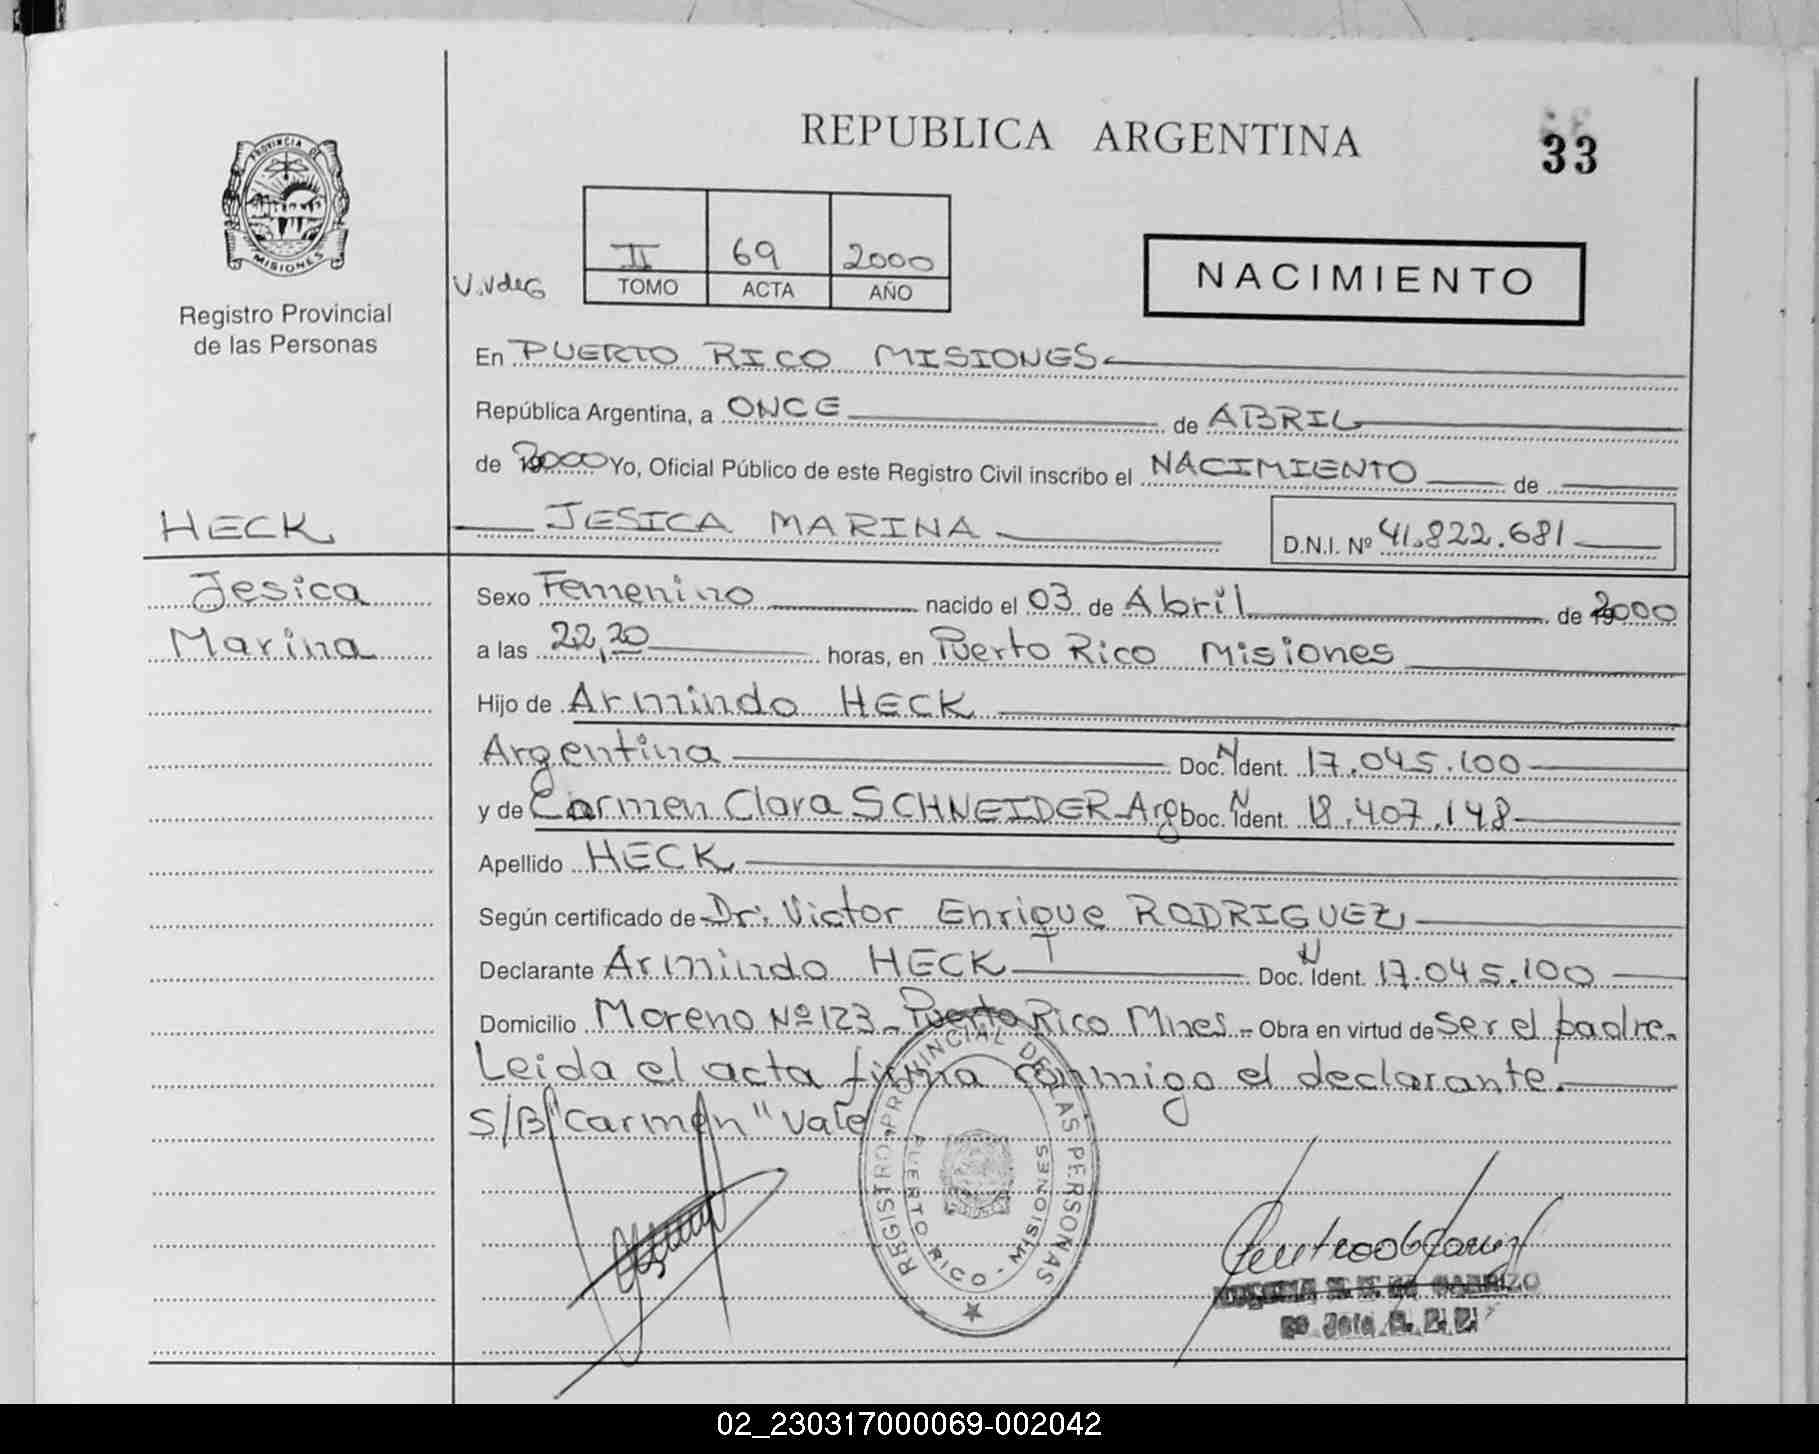 REPUBLICA ARGENTINA
33
PROVINCIA DE
MISIONES
Registro Provincial
de las Personas
II 69 2000
TOMO ACTA AÑO
NACIMIENTO
En PUERTO RICO MISIONES
República Argentina, a ONCE de ABRIL
de 2000 Yo, Oficial Público de este Registro Civil inscribo el NACIMIENTO de
HECK
JESICA MARINA
D.N.I. Nº 41.822.681
Jesica
Marina
Sexo Femenino nacido el 03 de Abril de 2000
a las 22,20 horas, en Puerto Rico Misiones
Hijo de Armindo HECK
Argentina Doc. N Ident. 17.045.100
y de Carmen Clara SCHNEIDER Arg Doc. N Ident. 18.407.148
Apellido HECK
Según certificado de Dr. Victor Enrique RODRIGUEZ
Declarante Armindo HECK Doc. N Ident. 17.045.100
Domicilio Moreno Nº 123 - Puerto Rico Mnes - Obra en virtud de ser el padre.
Leida el acta firma conmigo el declarante.
S/B "Carmen" Vale
REGISTRO PROVINCIAL DE LAS PERSONAS
PUERTO RICO - MISIONES
DE CARRIZO
02_230317000069-002042